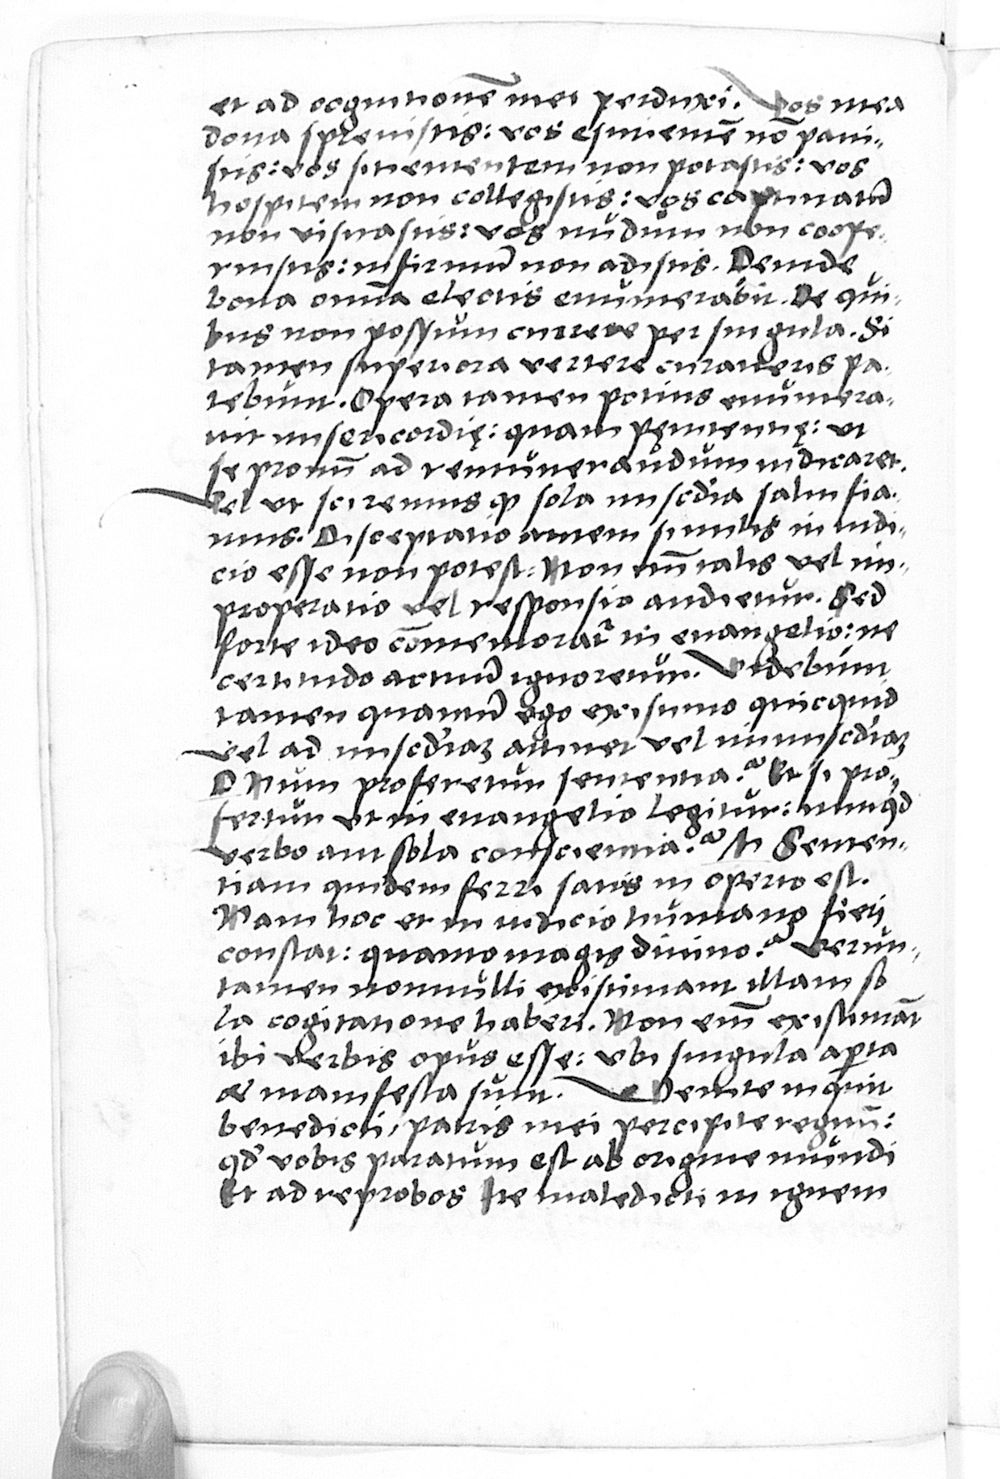 et ad cognitionē mei perduxi. Vos mea
dona sprevistis: vos esurientē nō pavi-
stis: vos sitientem non potastis: vos
hospitem non collegistis: vos captivatū
non visitastis: vos nudum non coope-
ruistis: infirmū non adistis. Deinde
bona omīa electis enumerabit. De qui-
bus non possum currere per singula. Si
tamen superiora vertere curaveris pa-
tebunt. Opera tamen potius enumera-
vit misericordię: quam penitentię: ut
se pronū ad remunerandum indicaret.
Vel ut sciremus ꝙ sola miscd'ia salui fia-
mus. Disceptatio autem similis in iudi-
cio esse non potest: Non em̄ talis vel im-
properatio vel responsio audietur. Sed
forte ideo cōmemorat' in evangelio: ne
certitudo actuū ignoretur. Videbunt
tamen quantū ego existimo quicquid
vel ad miscd'iaꝫ attinet vel inmiscd'iaꝫ
D Num proferetur sententia? Et si pro-
fertur ut in evangelio legitur: nunqd
verbo aut sola conscientia? A Senten-
tiam quidem ferri satis in aperto est.
Nam hoc et in iudicio humano fieri
constat: quanto magis divino? Verun-
tamen nonnulli existimant illam so
la cogitatione haberi. Non em̄ existimāt
ibi verbis opus esse: ubi singula apta
& manifesta sunt. Venite inquit
benedicti, patris mei percipite regnū:
qd' vobis paratum est ab origine mundi
Et ad reprobos Ite maledicti in ignem